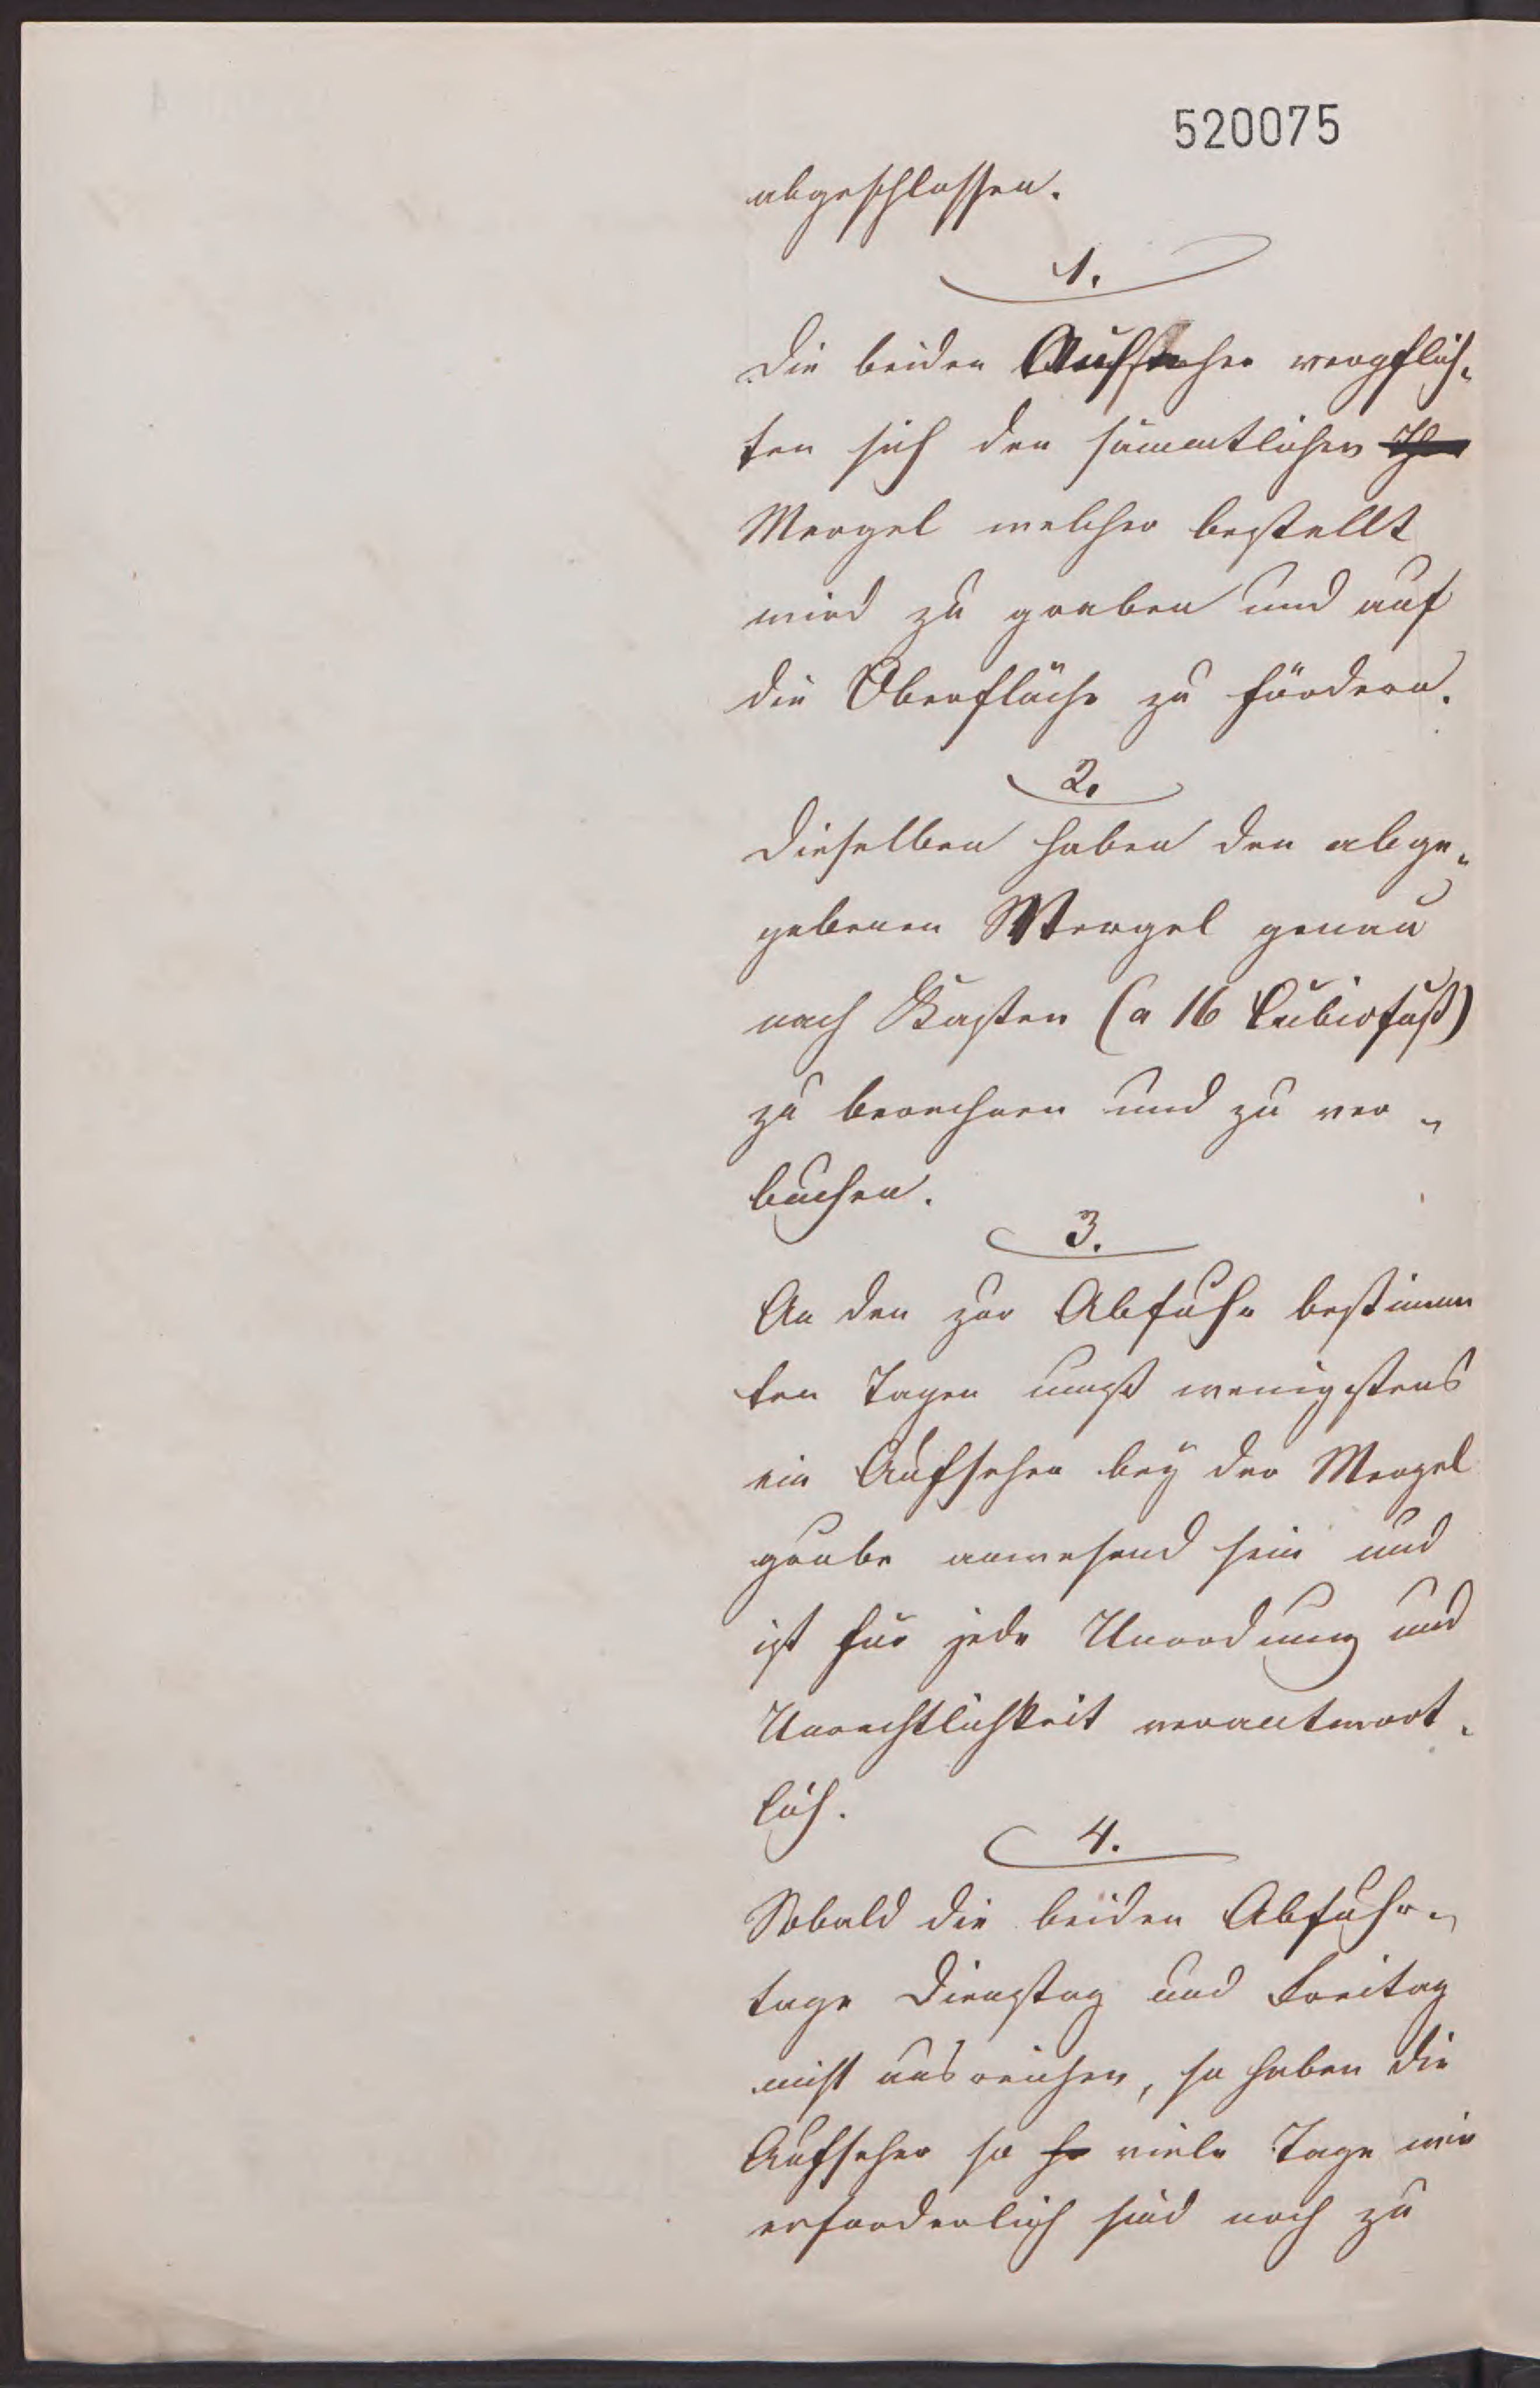 520075
abgeschlossen.
1.
Die beiden Aufseher verpflich-
ten sich den sämmtlichen
Mergel welcher bestellt
wird zu graben und auf
die Oberfläche zu fördern.
2.
Dieselben haben den abge-
gebenen Mergel genau
nach Kasten (a 16 Cubicfuß)
zu berechnen und zu ver-
buchen.
3.
An den zur Abfuhr bestimm
ten Tagen muß wenigstens
ein Aufseher bey der Mergel
grube anwesend sein und
ist für jede Unordnung und
Unrechtlichkeit verantwort-
lich.
4.
Sobald die beiden Abfuhr-
tage Dienstag und Freitag
nicht ausreichen, so haben die
Aufseher so so viele Tage wie
erforderlich sind noch zu